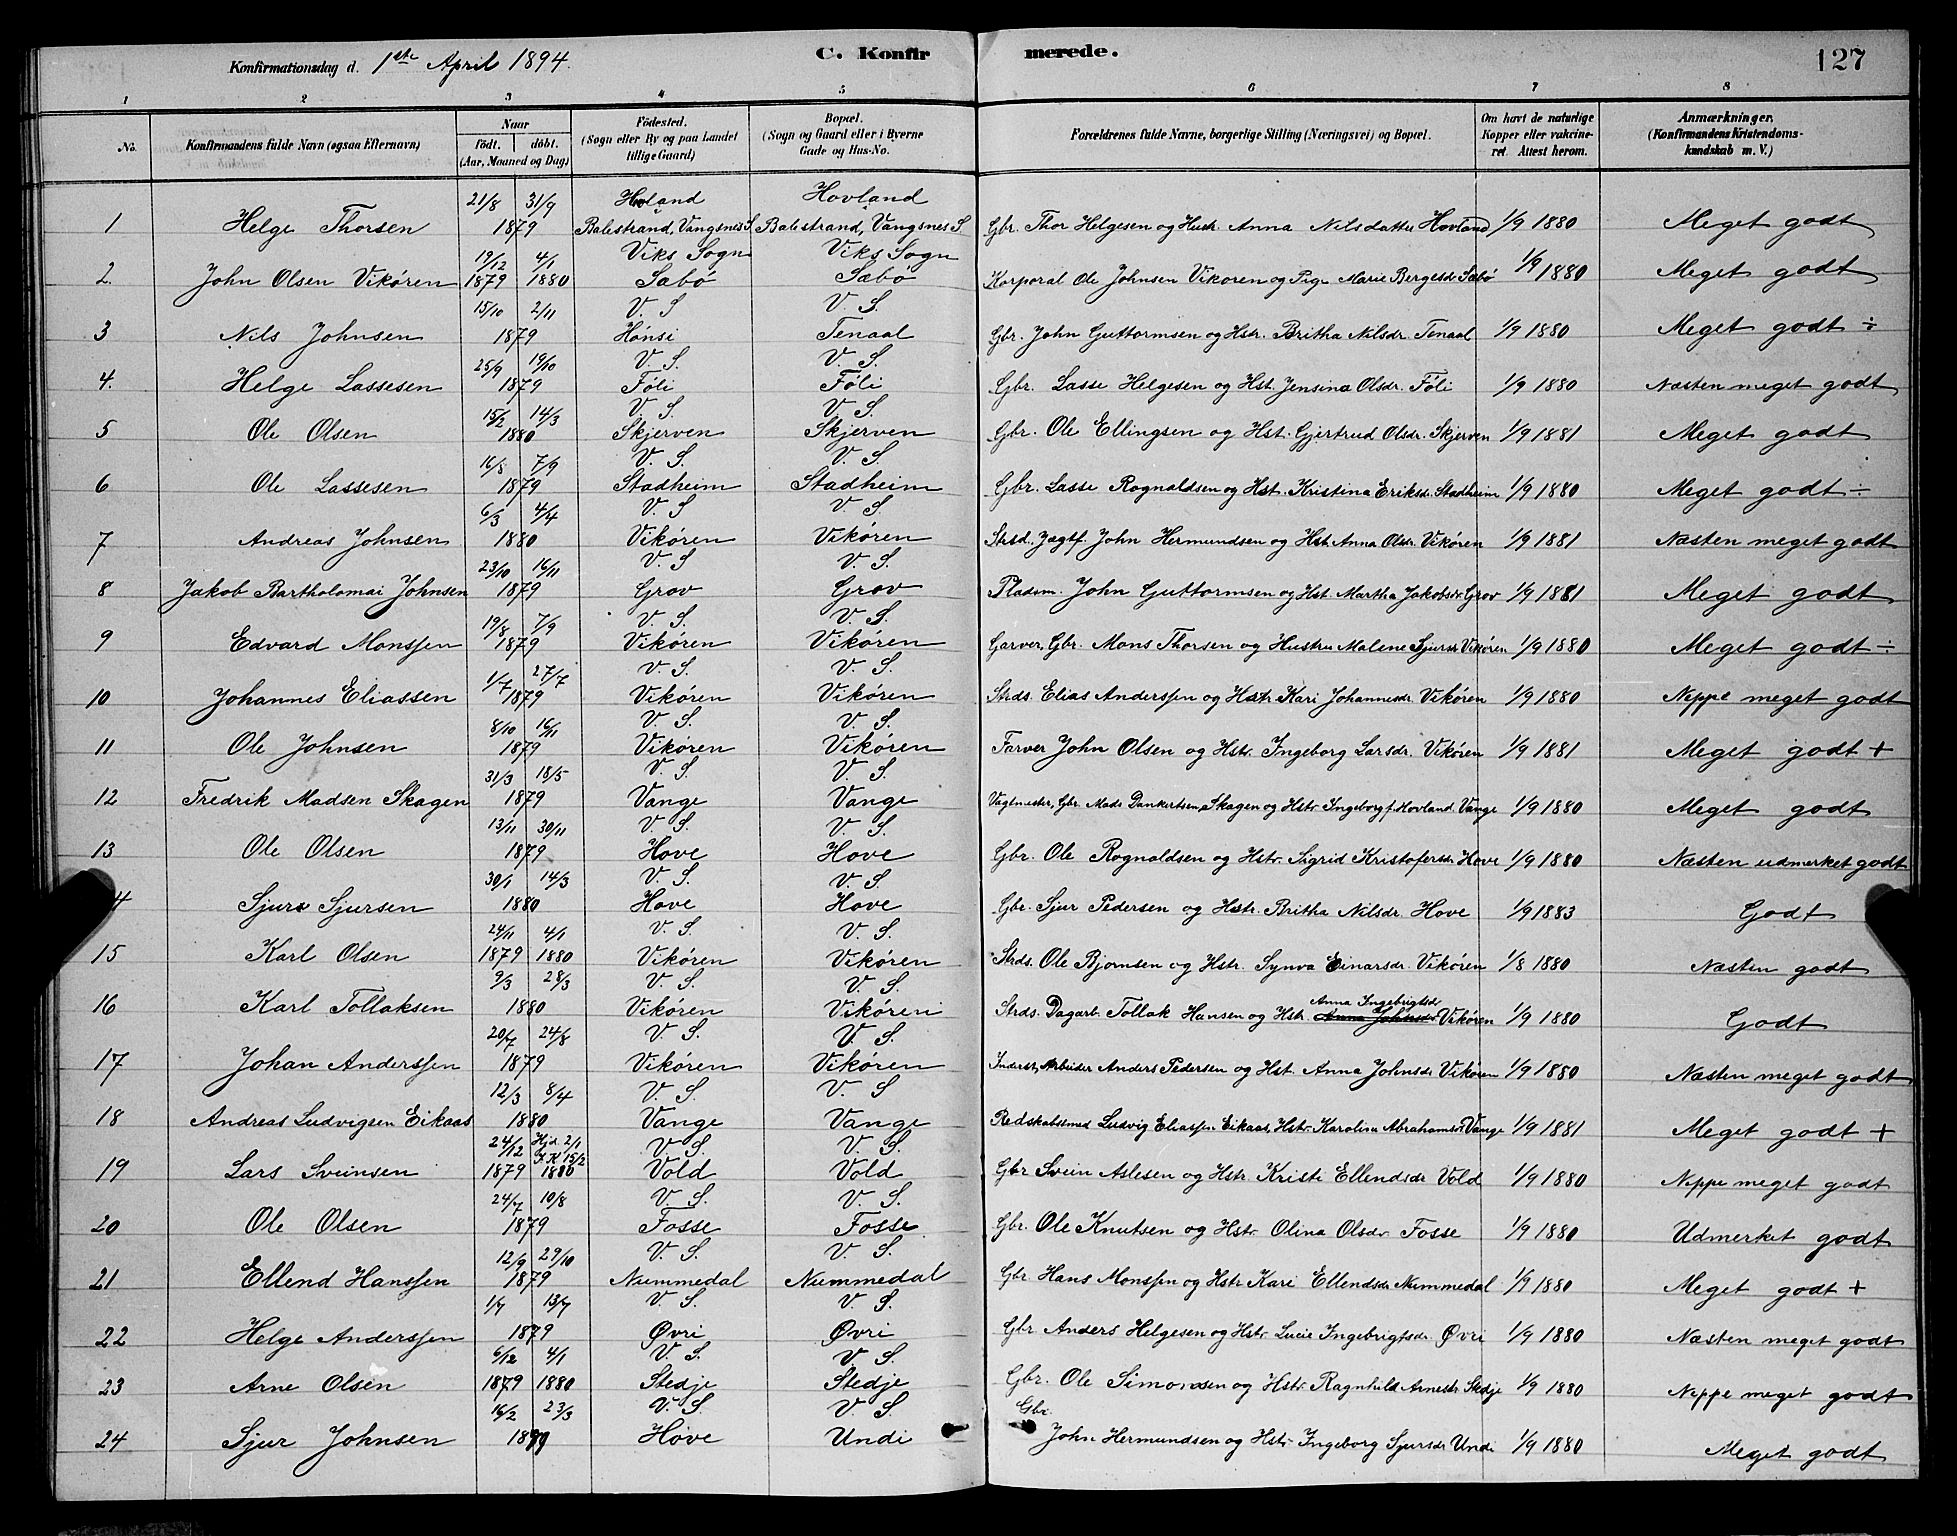 Konfirmationsdag d. 1ste April 1894. C. Konfirmerede. 127
1 2 3 4 5 6 7 8
No. Konfirmandens fulde Navn (ogsaa Efternavn) Naar födt. döbt. (Aar, Maaned og Dag) Födested. (Sogn eller By og paa Landet tillige Gaard) Bopæl. (Sogn og Gaard eller i Byerne Gade og Hus-No. Forældrenes fulde Navne, borgerlige Stilling (Næringsvei) og Bopæl. Om havt de naturlige Kopper eller vakcineret. Attest herom. Anmærkninger. (Konfirmandens Kristendomskundskab m. V.)
21/8 31/9 Hovland Hovland
1 Helge Thorsen 1879 Balestrand, Vangsnes S. Balestrand, Vangsnes S. Gbr. Thor Helgesen og Hustr. Anna Nilsdatter Hovland 1/9 1880 Meget godt
19/12 4/1 Viks Sogn Viks Sogn
2. John Olsen Vikören 1879 1880 Sæbö Sæbö Korporal Ole Johnsen Vikören og Pige Marie Bergesdr Sæbö 1/9 1880 Meget godt
15/10 2/11 V. S V. S.
3 Nils Johnsen 1879 Hönsi Tenaal Gbr. John Guttormsen og Hstr. Britha Nilsdr. Tenaal 1/9 1880 Meget godt ÷
25/9 19/10 V. S. V. S.
4. Helge Lassesen 1879 Föli Föli Gbr. Lasse Helgesen og Hst. Jensina Olsdr. Föli 1/9 1880 Næsten meget godt
15/2 14/3 V. S. V. S.
5 Ole Olsen 1880 Skjerven Skjerven Gbr. Ole Ellingsen og Hst. Gjertrud Olsdr. Skjerven 1/9 1881 Meget godt
16/8 7/9 V. S. V. S.
6 Ole Lassesen 1879 Stadheim Stadheim Gbr. Lasse Rognaldsen og Hst. Kristina Eriksdr. Stadheim 1/9 1880 Meget godt ÷
6/3 4/4 V. S V. S.
7 Andreas Johnsen 1880 Vikören Vikören Strsd. Jægtf. John Hermundsen og Hst. Anna Olsdr. Vikören 1/9 1881 Næsten meget godt
23/10 16/11 V. S V. S.
8 Jakob Bartholomai Johnsen 1879 Grov Grov Pladsm. John Guttormsen og Hst. Martha Jakobsdr Grov 1/9 1881 Meget godt
19/8 7/9 V. S. V. S.
9 Edvard Monssen 1879 Vikören Vikören Garver, Gbr. Mons Thorsen og Hustru Malene Sjursdr Vikören 1/9 1880 Meget godt ÷
1/7 27/7 V. S. V. S.
10 Johannes Eliassen 1879 Vikören Vikören Strds. Elias Anderssen og Hstr Kari Johannesdr. Vikören 1/9 1880 Neppe meget godt
8/10 16/11 V. S. V. S.
11 Ole Johnsen 1879 Vikören Vikören Farver John Olsen og Hstr. Ingeborg Larsdr. Vikören 1/9 1881 Meget godt +
31/3 18/5 V. S. V. S.
12 Fredrik Madsen Skagen 1879 Vange Vange Vagtmester, Gbr. Mads Dankertsen Skagen og Hstr Ingeborg f. Hovland. Vange 1/9 1880 Meget godt
13/11 30/11 V. S. V. S.
13 Ole Olsen 1879 Hove Hove Gbr. Ole Rognaldsen og Hstr. Sigrid Kristofersdr Hove 1/9 1880 Næsten udmerket godt
30/1 14/3 V. S. V. S.
4 Sjur Sjursen 1880 Hove Hove Gbr. Sjur Pedersen og Hstr. Britha Nilsdr. Hove 1/9 1883 Godt
24/11 4/1 V. S. V. S.
15 Karl Olsen 1879 1880 Vikören Vikören Strds. Ole Bjornsen og Hstr. Synva Einarsdr. Vikören 1/8 1880 Næsten godt
9/3 28/3 V. S. V. S.
16 Karl Tollaksen 1880 Vikören Vikören Strds. Dagarb. Tollak Hansen og Hstr. Anna Ingebrigtsdr Anna Johnsdr Vikören 1/9 1880 Godt
20/7 24/8 V. S. V. S.
17 Johan Anderssen 1879 Vikören Vikören Inderst, Arbeider Anders Pedersen og Hst. Anna Johnsdr Vikören 1/9 1880 Næsten meget godt
12/3 8/4 V. S. V. S
18 Andreas Ludvigsen Eikaas 1880 Vange Vange Redskabssmed Ludvig Eliassen Eikaas, Hstr. Karolina Abrahamsdr Vange 1/9 1881 Meget godt +
24/12 Hjd. 2/1 i K 15/2 V. S. V. S.
19 Lars Sveinsen 1879 1880 Vold Vold Gbr Svein Aslesen og Hstr. Kristi Ellendsdr Vold 1/9 1880 Neppe meget godt
24/7 10/8 V. S. V. S.
20 Ole Olsen 1879 Fosse Fosse Gbr. Ole Knutsen og Hstr. Olina Olsdr Fosse 1/9 1880 Udmerket godt
12/9 29/10 V. S. V. S.
21 Ellend Hanssen 1879 Nummedal Nummedal Gbr Hans Monssen og Hstr Kari Ellendsdr Nummedal 1/9 1880 Meget godt +
1/7 13/7 V. S. V. S.
22 Helge Anderssen 1879 Øvri Øvri Gbr Anders Helgesen og Hstr. Lucie Ingebrigtsdr. Øvri 1/9 1880 Næsten meget godt
6/12 4/1 V. S. V. S.
23 Arne Olsen 1879 1880 Stedje Stedje Gbr. Ole Simonsen og Hstr. Ragnhild Arnesdr Stedje 1/9 1880 Neppe meget godt
16/2 23/3 V. S. V. S. Gbr.
24 Sjur Johnsen Hove Undi John Hermundsen og Hstr Ingeborg Sjursdr Undi 1/9 1880 Meget godt